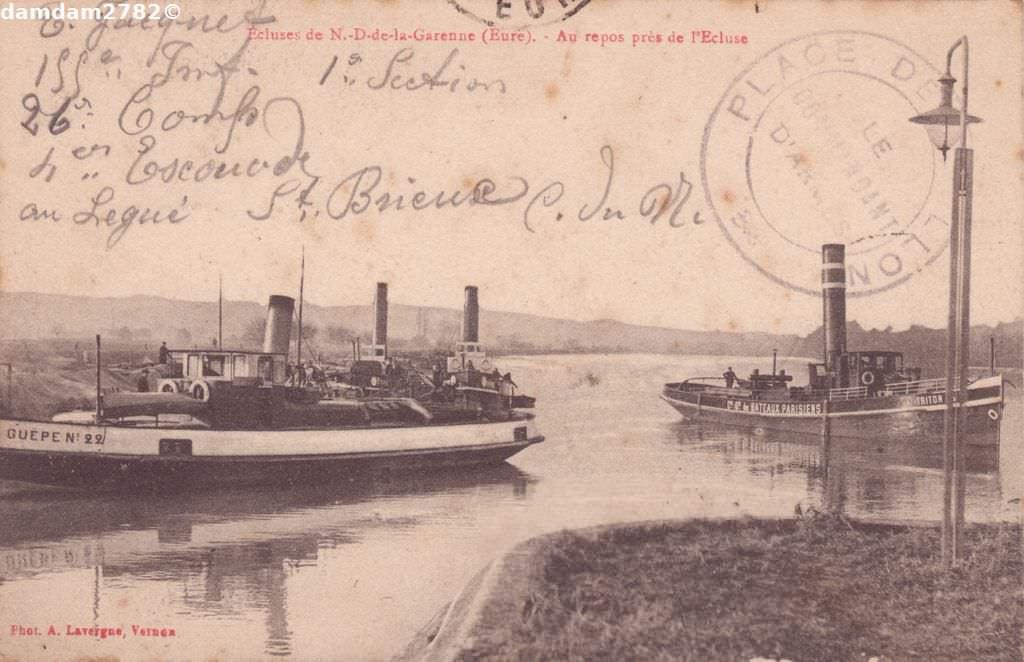 damdam2782©
EUR
Ecluses de N.-D-de-la-Garenne (Eure). - Au repos près de l'Ecluse
E. Jacquet
155e Inf. 1e Section
26e Comp
4er Escouade
au Legué St. Brieux C. du N.
PLACE DE LON
LE COMMANDANT D'AR
GUEPE N° 22
Cie Gle DE BATEAUX PARISIENS
TRITON
Phot. A. Lavergne, Vernon